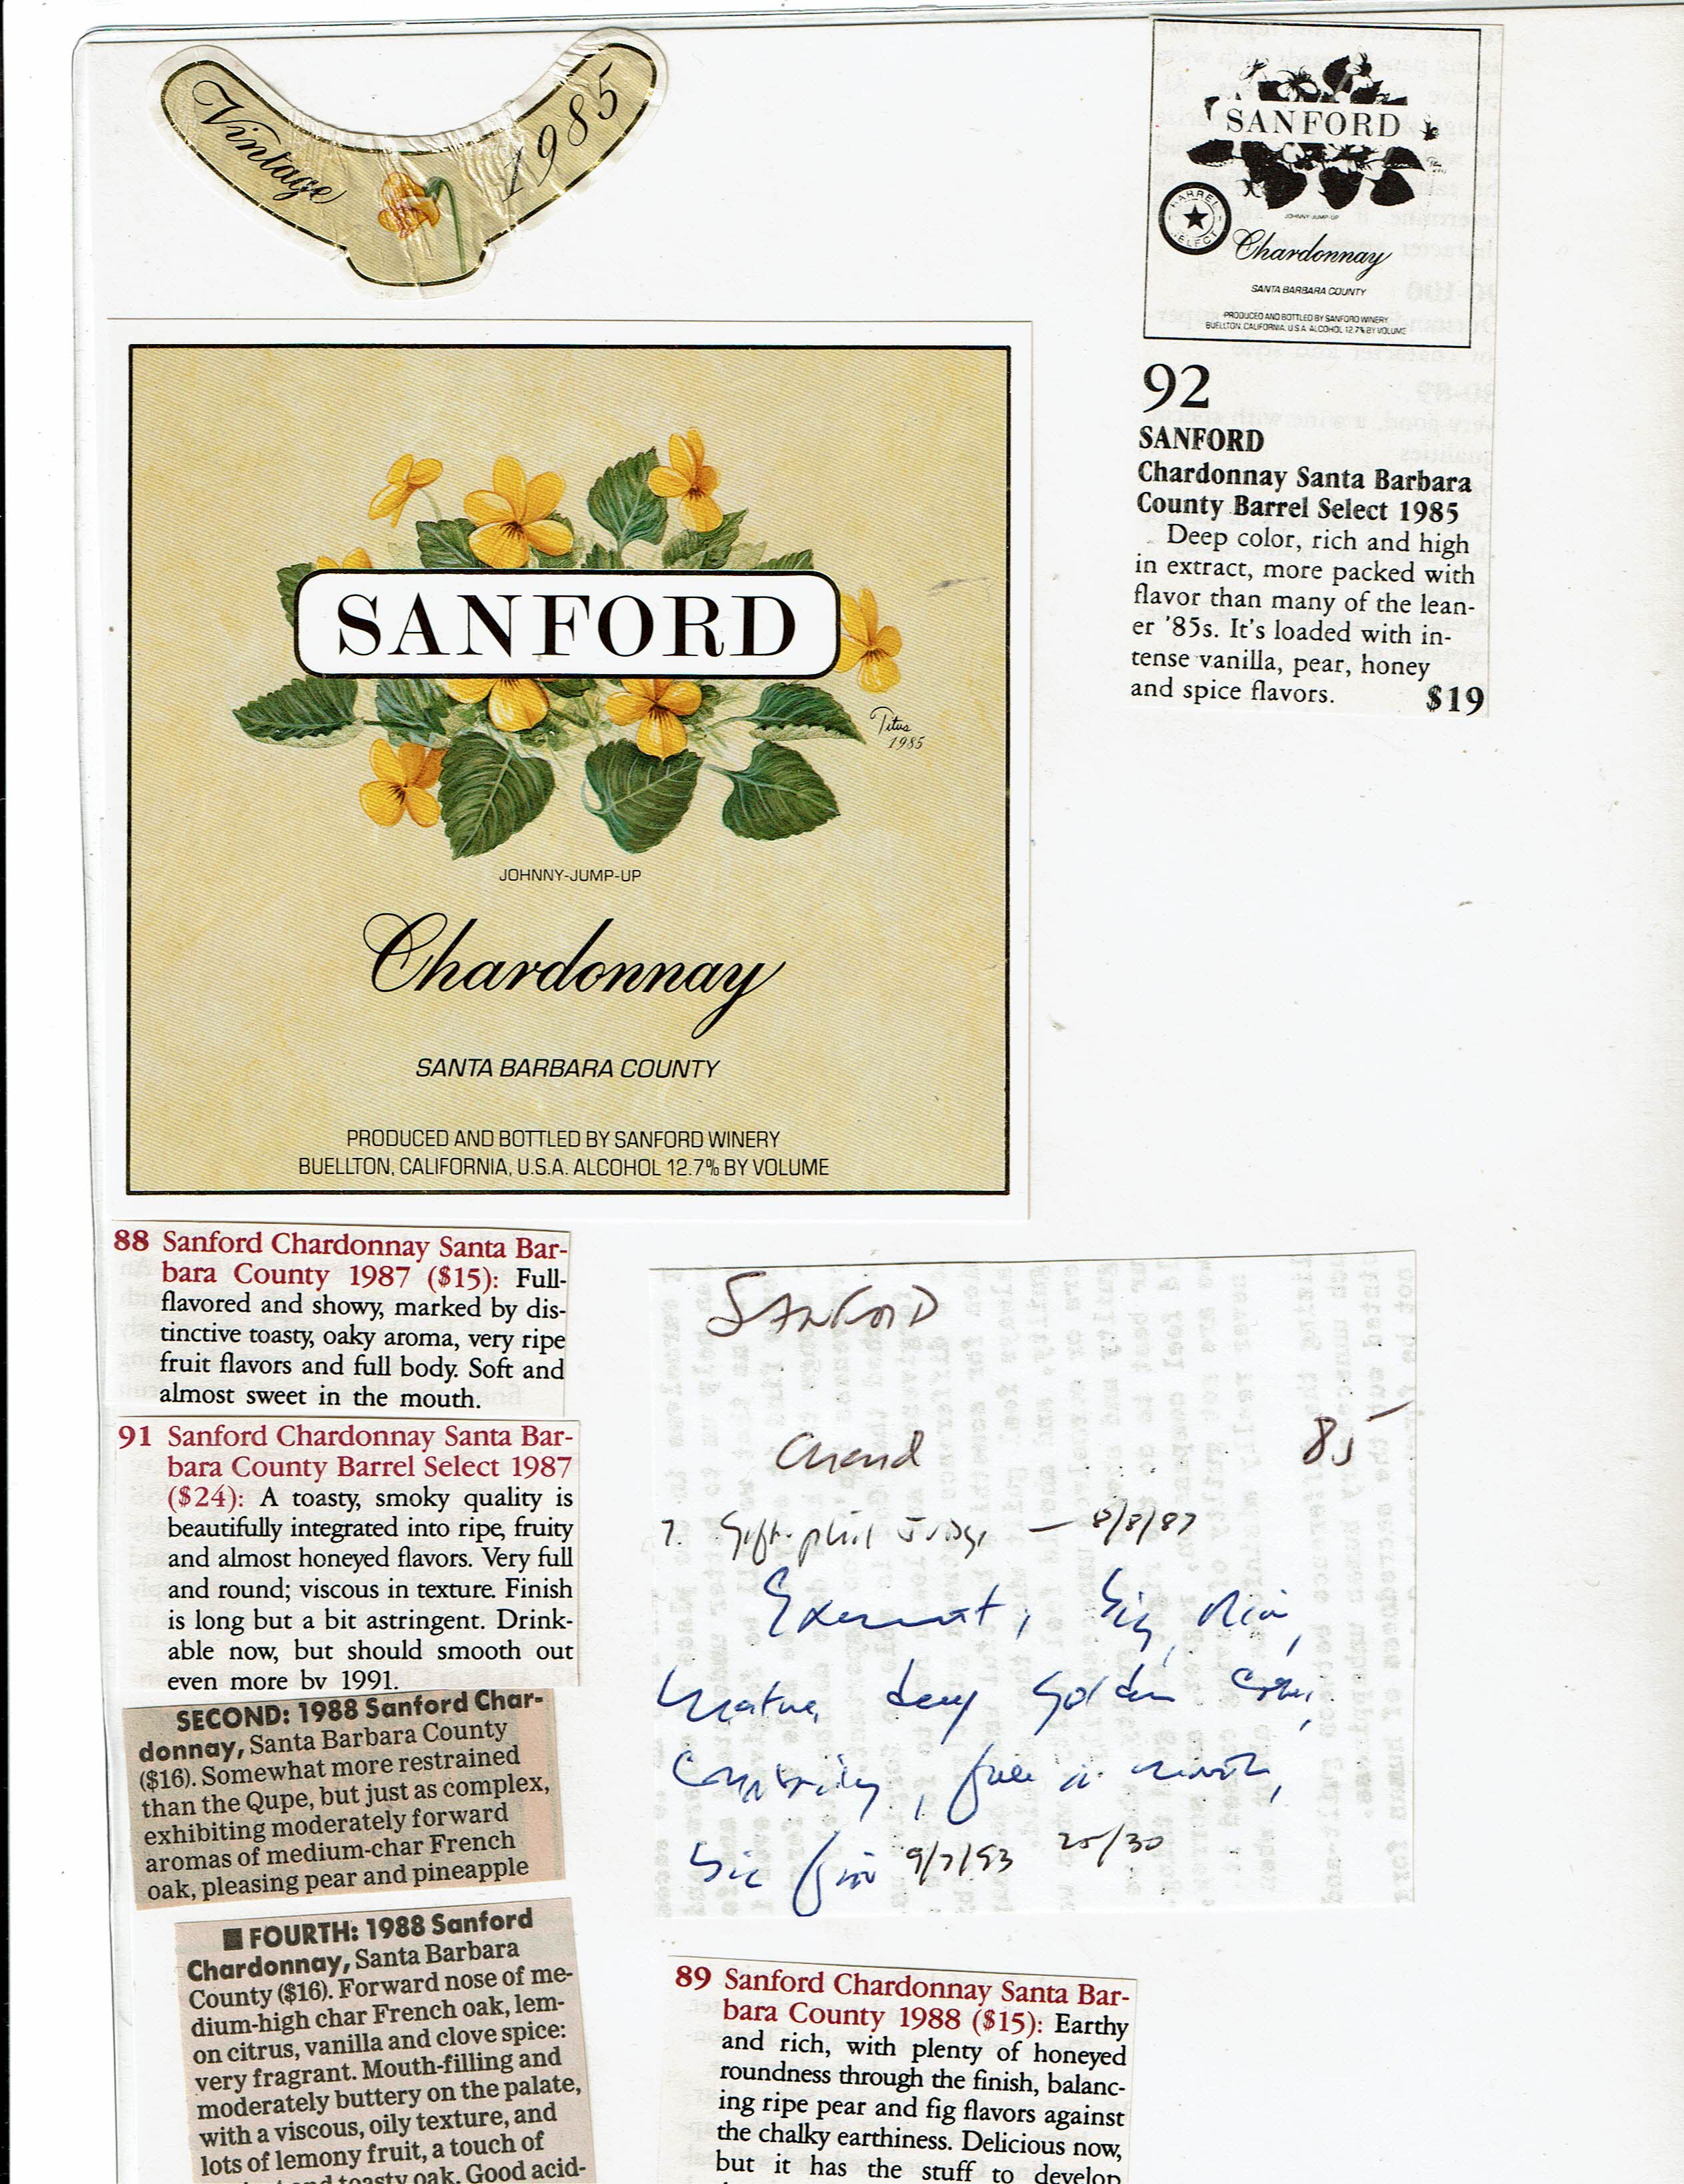 Vintage 1985
SANFORD
Titus
1985
JOHNNY-JUMP-UP
Chardonnay
SANTA BARBARA COUNTY
PRODUCED AND BOTTLED BY SANFORD WINERY
BUELLTON, CALIFORNIA, U.S.A. ALCOHOL 12.7% BY VOLUME
SANFORD
BARREL SELECT
JOHNNY-JUMP-UP
Chardonnay
SANTA BARBARA COUNTY
PRODUCED AND BOTTLED BY SANFORD WINERY
BUELLTON, CALIFORNIA, U.S.A. ALCOHOL 12.7% BY VOLUME
92
SANFORD
Chardonnay Santa Barbara
County Barrel Select 1985
Deep color, rich and high
in extract, more packed with
flavor than many of the lean-
er '85s. It's loaded with in-
tense vanilla, pear, honey
and spice flavors. $19
88 Sanford Chardonnay Santa Bar-
bara County 1987 ($15): Full-
flavored and showy, marked by dis-
tinctive toasty, oaky aroma, very ripe
fruit flavors and full body. Soft and
almost sweet in the mouth.
91 Sanford Chardonnay Santa Bar-
bara County Barrel Select 1987
($24): A toasty, smoky quality is
beautifully integrated into ripe, fruity
and almost honeyed flavors. Very full
and round; viscous in texture. Finish
is long but a bit astringent. Drink-
able now, but should smooth out
even more by 1991.
SECOND: 1988 Sanford Char-
donnay, Santa Barbara County
($16). Somewhat more restrained
than the Qupe, but just as complex,
exhibiting moderately forward
aromas of medium-char French
oak, pleasing pear and pineapple
FOURTH: 1988 Sanford
Chardonnay, Santa Barbara
County ($16). Forward nose of me-
dium-high char French oak, lem-
on citrus, vanilla and clove spice:
very fragrant. Mouth-filling and
moderately buttery on the palate,
with a viscous, oily texture, and
lots of lemony fruit, a touch of
toasty oak. Good acid-
SANFORD
Chard 85
7. Gift - phil — 8/8/87
big
deep golden color,
9/7/93 25/30
89 Sanford Chardonnay Santa Bar-
bara County 1988 ($15): Earthy
and rich, with plenty of honeyed
roundness through the finish, balanc-
ing ripe pear and fig flavors against
the chalky earthiness. Delicious now,
but it has the stuff to develop